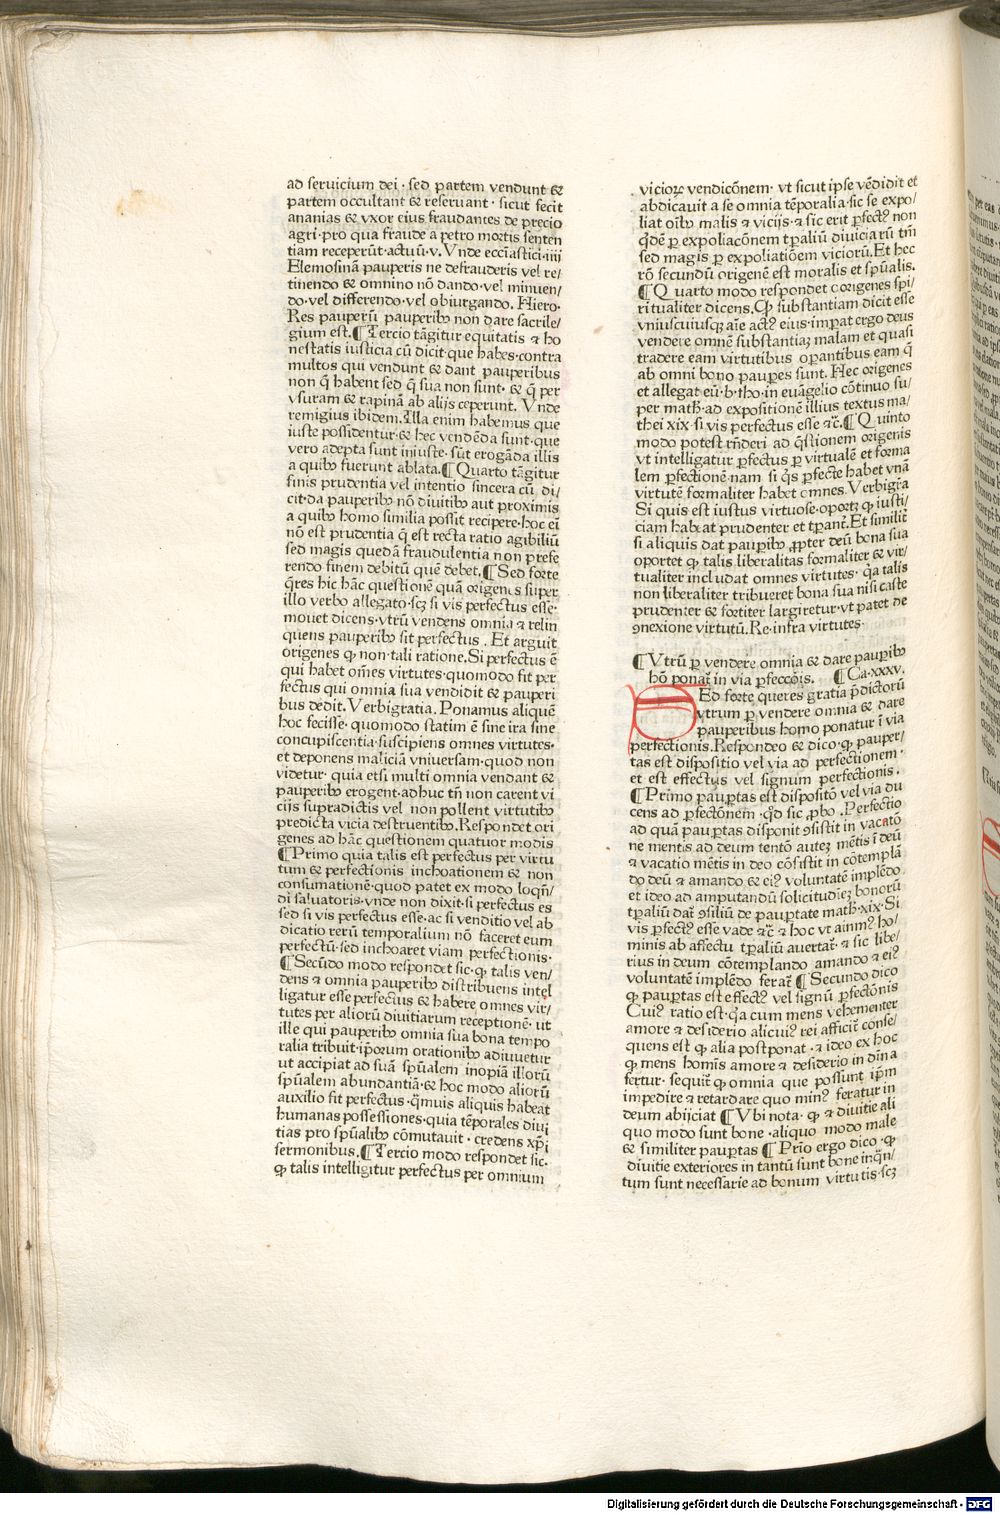 ad seruicium dei · sed partem vendunt &
partem occultant & reseruant · sicut fecit
ananias & vxor eius fraudantes de precio
agri · pro qua fraude a petro mortis senten
tiam receperūt · actuū · v. Vnde eccīastici · iiij
Elemosinā pauperis ne defrauderis vel re/
tinendo & omnino nō dando · vel minuen/
do · vel differendo · vel obiurgando. Hiero·
Res pauperū pauperibꝰ non dare sacrile/
gium est. ¶ Tercio tāgitur equitatis ⁊ ho
nestatis iusticia cū dicit · que habes · contra
multos qui vendunt & dant pauperibus
non q̄ habent sed q̄ sua non sunt · & q̄ per
vsuram & rapinā ab alijs ceperunt. Vnde
remigius ibidem. Illa enim habemus que
iuste possidentur · & hec vendēda sunt · que
vero adepta sunt iniuste · sūt erogāda illis
a quibꝰ fuerunt ablata. ¶ Quarto tāgitur
finis prudentia vel intentio sincera cū di/
cit · da pauperibꝰ nō diuitibꝰ aut proximis
a quibꝰ homo similia possit recipere · hoc eī
nō est prudentia q̄ est recta ratio agibiliū
sed magis quedā fraudulentia non prefe
rendo finem debitū quē debet. ¶ Sed forte
q̄res hic hāc questionē quā origenes super
illo verbo allegato · scꝫ si vis perfectus esse·
mouet dicens · vtrū vendens omnia ⁊ relin
quens pauperibꝰ sit perfectus . Et arguit
origenes ꝙ non tali ratione. Si perfectus ē
qui habet om̄es virtutes · quomodo fit per
fectus qui omnia sua vendidit & pauperi
bus dedit. Verbigratia. Ponamus aliquē
hoc fecisse · quomodo statim ē sine ira sine
concupiscentia · suscipiens omnes virtutes·
et deponens maliciā vniuersam · quod non
videtur · quia etsi multi omnia vendant &
pauperibꝰ erogent · adhuc tn̄ non carent vi
cijs supradictis vel non pollent virtutibꝰ
predicta vicia destruentibꝰ. Respondet ori
genes ad hāc questionem quatuor modis
¶ Primo quia talis est perfectus per virtu
tum & perfectionis inchoationem & non
consumationē · quod patet ex modo loqn̄/
di saluatoris · vnde non dixit · si perfectus es
sed si vis perfectus esse · ac si venditio vel ab
dicatio rerū temporalium nō faceret eum
perfectū · sed inchoaret viam perfectionis·
¶ Secūdo modo respondet sic · ꝙ talis ven/
dens ⁊ omnia pauperibꝰ distribuens intel
ligatur esse perfectus & habere omnes vir/
tutes per aliorū diuitiarum receptionē · ut
ille qui pauperibꝰ omnia sua bona tempo
ralia tribuit · ip̄orum orationibꝰ adiuuetur
ut accipiat ad suā sp̄ualem inopiā illorū
sp̄ualem abundantiā · & hoc modo aliorū
auxilio fit perfectus · q̄muis aliquis habeat
humanas possessiones · quia tēporales diui
tias pro sp̄ualibꝰ cōmutauit · credens xp̄i
sermonibus. ¶ Tercio modo respondet sic·
ꝙ talis intelligitur perfectus per omnium
vicioꝝ vendicōnem · vt sicut ipse vēdidit et
abdicauit a se omnia tēporalia · sic se expo/
liat oībꝰ malis ⁊ vicijs · ⁊ sic erit ꝑfectꝰ non
q̄dē ꝑ expoliacōnem tꝑaliū diuiciarū tm̄
sed magis ꝑ expoliatiōem viciorū. Et hec
rō secundū origenē est moralis et sp̄ualis.
¶ Quarto modo respondet origenes spi/
ritualiter dicens. Qꝫ substantiam dicit esse
vniuscuiusqꝫ aīe actꝰ eius · imꝑat ergo deus
vendere omnē substantiaꝫ malam et quasi
tradere eam virtutibus oꝑantibus eam q̄
ab omni bono pauꝑes sunt. Hec origenes
et allegat eū · b · tho · in euāgelio cōtinuo su/
per math̄ · ad expositionē illius textus ma/
thei xix · si vis perfectus esse ⁊c̄. ¶ Quinto
modo potest rn̄deri ad q̄stionem origenis
vt intelligatur ꝑfectus ꝑ virtualē et forma
lem ꝑfectionē · nam si q̄s ꝑfecte habet vnā
virtutē formaliter habet omnes. Verbigr̄a
Si quis est iustus virtuose · oportꝫ ꝙ iusti/
ciam habeat prudenter et tꝑant̄. Et similit̄
si aliquis dat pauꝑibꝰ ꝓpter deū bona sua
oportet ꝙ talis liberalitas formaliter & vir/
tualiter includat omnes virtutes · q̄a talis
non liberaliter tribueret bona sua nisi caste
prudenter & fortiter largiretur · vt patet de
ꝯnexione virtutū. Re · infra virtutes·
¶ Vtrū ꝑ vendere omnia & dare pauꝑibꝰ
hō ponat̄ in via ꝑfeccōis. ¶ Ca · xxxv.
Ed forte queres gratia p̄dictorū
vtrum ꝑ vendere omnia & dare
pauperibus homo ponatur ī via
perfectionis. Respondeo & dico · ꝙ pauper/
tas est dispositio vel via ad perfectionem ·
et est effectus vel signum perfectionis.
¶ Primo pauꝑtas est dispositō vel via du
cens ad ꝑfectōnem · qd̄ sic ꝓbo . Perfectio
ad quā pauꝑtas disponit ꝯsistit in vacatō
ne mentis ad deum · tentō auteꝫ mētis ī deū
⁊ vacatio mētis in deo cōsistit in cōtemplā
do deū ⁊ amando & eiꝰ voluntatē implēdo
et ideo ad amputandū solicitudīeꝫ bonorū
tꝑaliū dat̄ ꝯsiliū de pauꝑtate math̄ · xix · Si
vis ꝑfectꝰ esse vade ⁊c̄ ⁊ hoc vt aīmꝰ ho/
minis ab affectu tꝑaliū auertat̄ · ⁊ sic libe/
rius in deum cōtemplando amando ⁊ eiꝰ
voluntatē implēdo ferat̄ ¶ Secundo dico
ꝙ pauꝑtas est effectꝰ vel signū ꝑfectōnis
Cuiꝰ ratio est · q̄a cum mens vehementer
amore ⁊ desiderio alicuiꝰ rei afficit̄ conse/
quens est ꝙ alia postponat · ⁊ ideo ex hoc
ꝙ mens homīs amore ⁊ desiderio in diīna
fertur · sequit̄ ꝙ omnia que possunt ip̄m
impedire ⁊ retardare quo minꝰ feratur in
deum abijciat ¶ Vbi nota · ꝙ ⁊ diuitie ali
quo modo sunt bone · aliquo modo male
& similiter pauꝑtas ¶ Prīo ergo dico · ꝙ
diuitie exteriores in tantū sunt bone inq̄n/
tum sunt necessarie ad bonum virtutis · scꝫ
Digitalisierung gefördert durch die Deutsche Forschungsgemeinschaft - DFG